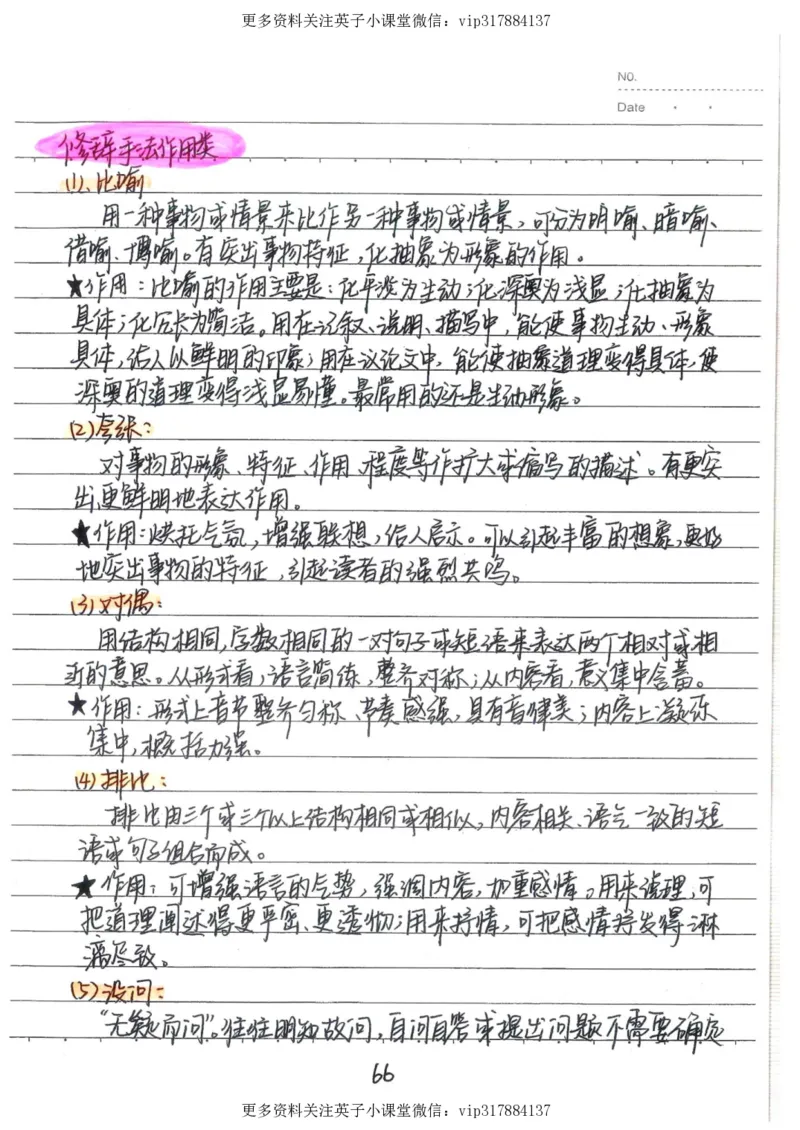 更多资料关注英子小课堂微信：vip317884137
NO.
Date
修辞手法作用类
(1)、比喻
用一种事物或情景来比作另一种事物或情景，可分为明喻、暗喻、
借喻、博喻。有突出事物特征，化抽象为形象的作用。
★作用：比喻的作用主要是：化平淡为生动；化深奥为浅显；化抽象为
具体；化冗长为简洁。用在记叙、说明、描写中，能使事物生动、形象
具体，给人以鲜明的印象；用在议论文中，能使抽象道理变得具体，使
深奥的道理变得浅显易懂。最常用的还是生动形象。
(2)夸张：
对事物的形象、特征、作用、程度等作扩大或缩写的描述。有更突
出更鲜明地表达作用。
★作用：烘托气氛，增强联想，给人启示。可以引起丰富的想象，更好
地突出事物的特征，引起读者的强烈共鸣。
(3)对偶：
用结构相同，字数相同的一对句子或短语来表达两个相对或相
近的意思。从形式看，语言简练，整齐对称；从内容看，意义集中含蓄。
★作用：形式上音节整齐匀称、节奏感强，具有音律美；内容上凝练
集中，概括力强。
(4)排比：
排比由三个或三个以上结构相同或相似，内容相关、语气一致的短
语或句子组合而成。
★作用：可增强语言的气势，强调内容，加重感情。用来说理，可
把道理阐述得更严密、更透彻；用来抒情，可把感情抒发得淋
漓尽致。
(5)设问：
“无疑而问”。往往明知故问，自问自答或提出问题不需要确定
66
更多资料关注英子小课堂微信：vip317884137